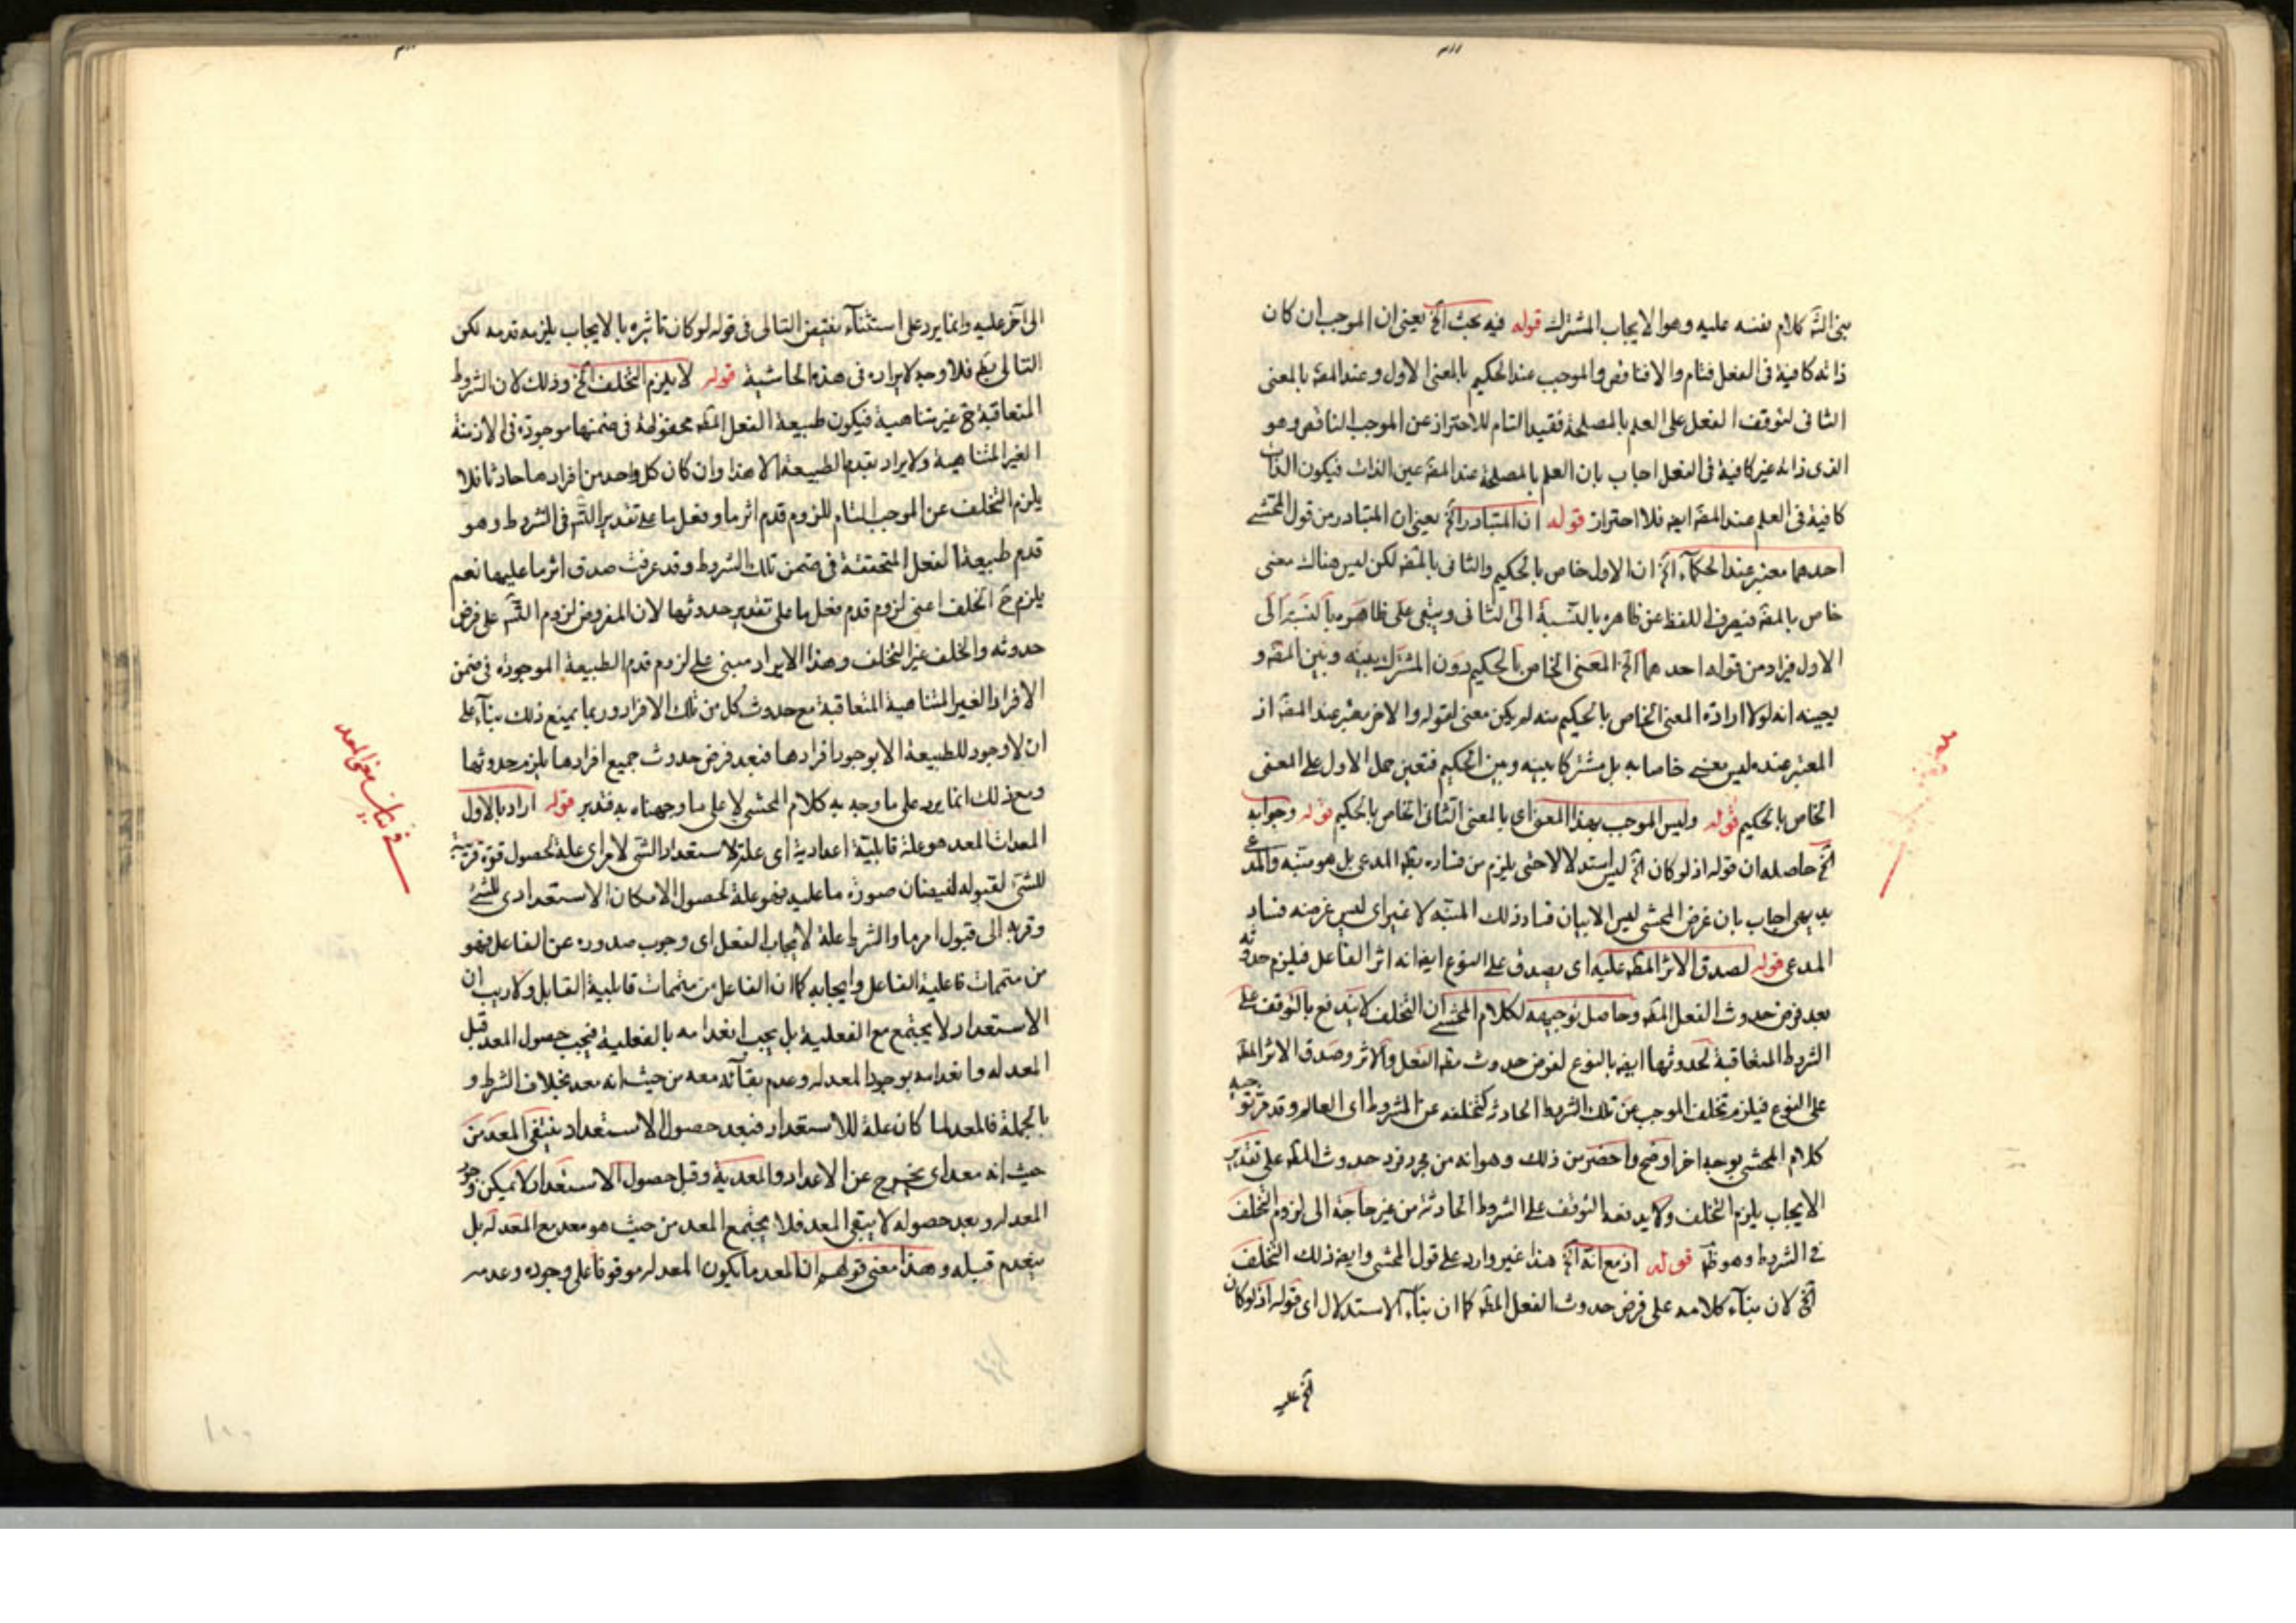 كلام نفسه عليه وهو الايجاب المشترك قوله فيه بحث الخ يعنى ان الموجب ان كان
ذاته كافية فى الفعل فتام والا فناقص والموجب عند الحكيم بالمعنى الاول وعند المتكلم بالمعنى
الثانى لتوقف الفعل على العلم بالمصلحة فقيد التام للاحتراز عن الموجب الناقص وهو
الذى ذاته غير كافية فى الفعل اجاب بان العلم بالمصلحة عند المتكلم عين الذات فيكون الذات
كافية فى العلم عند ايضا فلا احتراز قوله ان المتبادر الخ يعنى ان المتبادر من قول المحشى
احدهما معتبر عند الحكماء الخ ان الاول خاص بالحكيم والثانى لكن ليس هناك معنى
خاص فيصرف اللفظ عن ظاهره بالنسبة الى الثانى ويبقى على ظاهره بالنسبة الى
الاول فيراد من قوله احدهما الخ المعنى الخاص بالحكيم دون المشترك بينه وبين و
يعينه انه لولا ارادة المعنى الخاص بالحكيم منه لم يكن معنى لقوله والاخر معتبر عند اذ
المعتبر عنده ليس معنى خاصا به بل مشتركا بينه وبين الحكيم فتعين حمل الاول على المعنى
الخاص بالحكيم قوله وليس الموجب بهذا المعنى اى بالمعنى الثانى الخاص بالحكيم قوله وجوابه
الخ حاصله ان قوله اذ لو كان الخ ليس استدلالا حتى يلزم من فساده المدعى بل هو منبه والمدعى
بديهى اجاب بان غرض المحشى ليس الا بيان فساد ذلك المنبه لا غير اى ليس غرضه فساد
المدعى قوله لصدق الاثر عليه اى يصدق على النوع ايضا انه اثر الفاعل فيلزم حدوثه
بعد فرض حدوث الفعل وحاصل توجيهه لكلام المحشى ان التخلف لا يندفع بالتوقف على
الشروط المتعاقبة لحدوثها ايضا بالنوع لفرض حدوث الفعل والاثر وصدق الاثر
على النوع فيلزم تخلف الموجب عن تلك الشروط الحادثة كتخلفه عن المشروط اى العالم وقد
كلام المحشى بوجه اخر اوضح واخصر من ذلك وهو انه من مجرد فرض حدوث على تقدير
الايجاب يلزم التخلف ولا يدفعه التوقف على الشروط الحادثة من غير حاجة الى لزوم التخلف
فى الشروط وهو ظ قوله اذ مع انه الخ هذا غير وارد على قول المحشى وايضا ذلك التخلف
الخ لان بناء كلامه على فرض حدوث الفعل كما ان بناء الاستدلال اى قوله اذ لو كان
الخ عليه
الى آخر عليه وانما يرد على استثناء نقيض التالى فى قوله لو كان تاثيره بالايجاب يلزمه قدمه لكن
التالى فلا وجه لايراده فى هذه الحاشية قوله لا يلزم التخلف الخ وذلك لان الشروط
المتعاقبة ح غير متناهية فيكون طبيعة الفعل محفوظة فى ضمنها موجودة فى الازمنة
الغير المتناهية ولا يراد بقدم الطبيعة الا هذا وان كان كل واحد من افرادها حادثا فلا
يلزم التخلف عن الموجب التام للزوم قدم اثر ما وفعل ما على تقدير فى الشروط وهو
قدم طبيعة الفعل المتحققة فى ضمن تلك الشروط وقد عرفت صدق اثر ما عليها نعم
يلزم ح الخلف اعنى لزوم قدم فعل ما على تقدير حدوثها لان المفروض لزوم على فرض
حدوثه والخلف غير التخلف وهذا الايراد مبنى على لزوم قدم الطبيعة الموجودة فى ضمن
الافراد الغير المتناهية المتعاقبة مع حدوث كل من تلك الافراد وربما يمنع ذلك بناء على
ان لا وجود للطبيعة الا بوجود افرادها فبعد فرض حدوث جميع افرادها يلزم حدوثها
ومع ذلك انما يرد على ما وجه به كلام المحشى لا على ما وجهناه به فتدبر قوله اراد بالاول
المعدات المعد هو علة قابلية اعدادية اى علة لاستعداد الشى لامر اى علة لحصول قوة قريبة
للشئ لقبوله لفيضان صورة ما عليه فهو علة لحصول الامكان الاستعدادى للشئ
وقربه الى قبول امر ما والشرط علة لايجاب الفعل اى وجوب صدوره عن الفاعل فهو
من متممات فاعلية الفاعل وايجابه كما ان الفاعل من متممات قابلية القابل ولا ريب ان
الاستعداد لا يجتمع مع الفعلية بل يجب انعدامه بالفعلية فيجب حصول المعد قبل
المعد له وانعدامه بوجود المعد له وعدم بقائه معه من حيث انه معد بخلاف الشرط و
بالجملة فالمعد لما كان علة للاستعداد فبعد حصول الاستعداد ينتفى المعد من
حيث انه معد اى يخرج عن الاعداد والمعدية وقبل حصول الاستعداد لا يمكن وجود
المعد له وبعد حصوله لا يبقى المعد فلا يجتمع المعد من حيث هو معد مع المعد له بل
ينعدم قبله وهذا معنى قولهم ان المعد ما يكون المعد له موقوفا على وجوده وعدمه
فى بيان معنى المعد